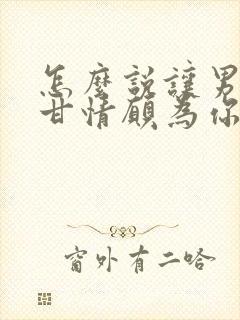 怎麼説讓男
甘情願為你
窗外有二哈